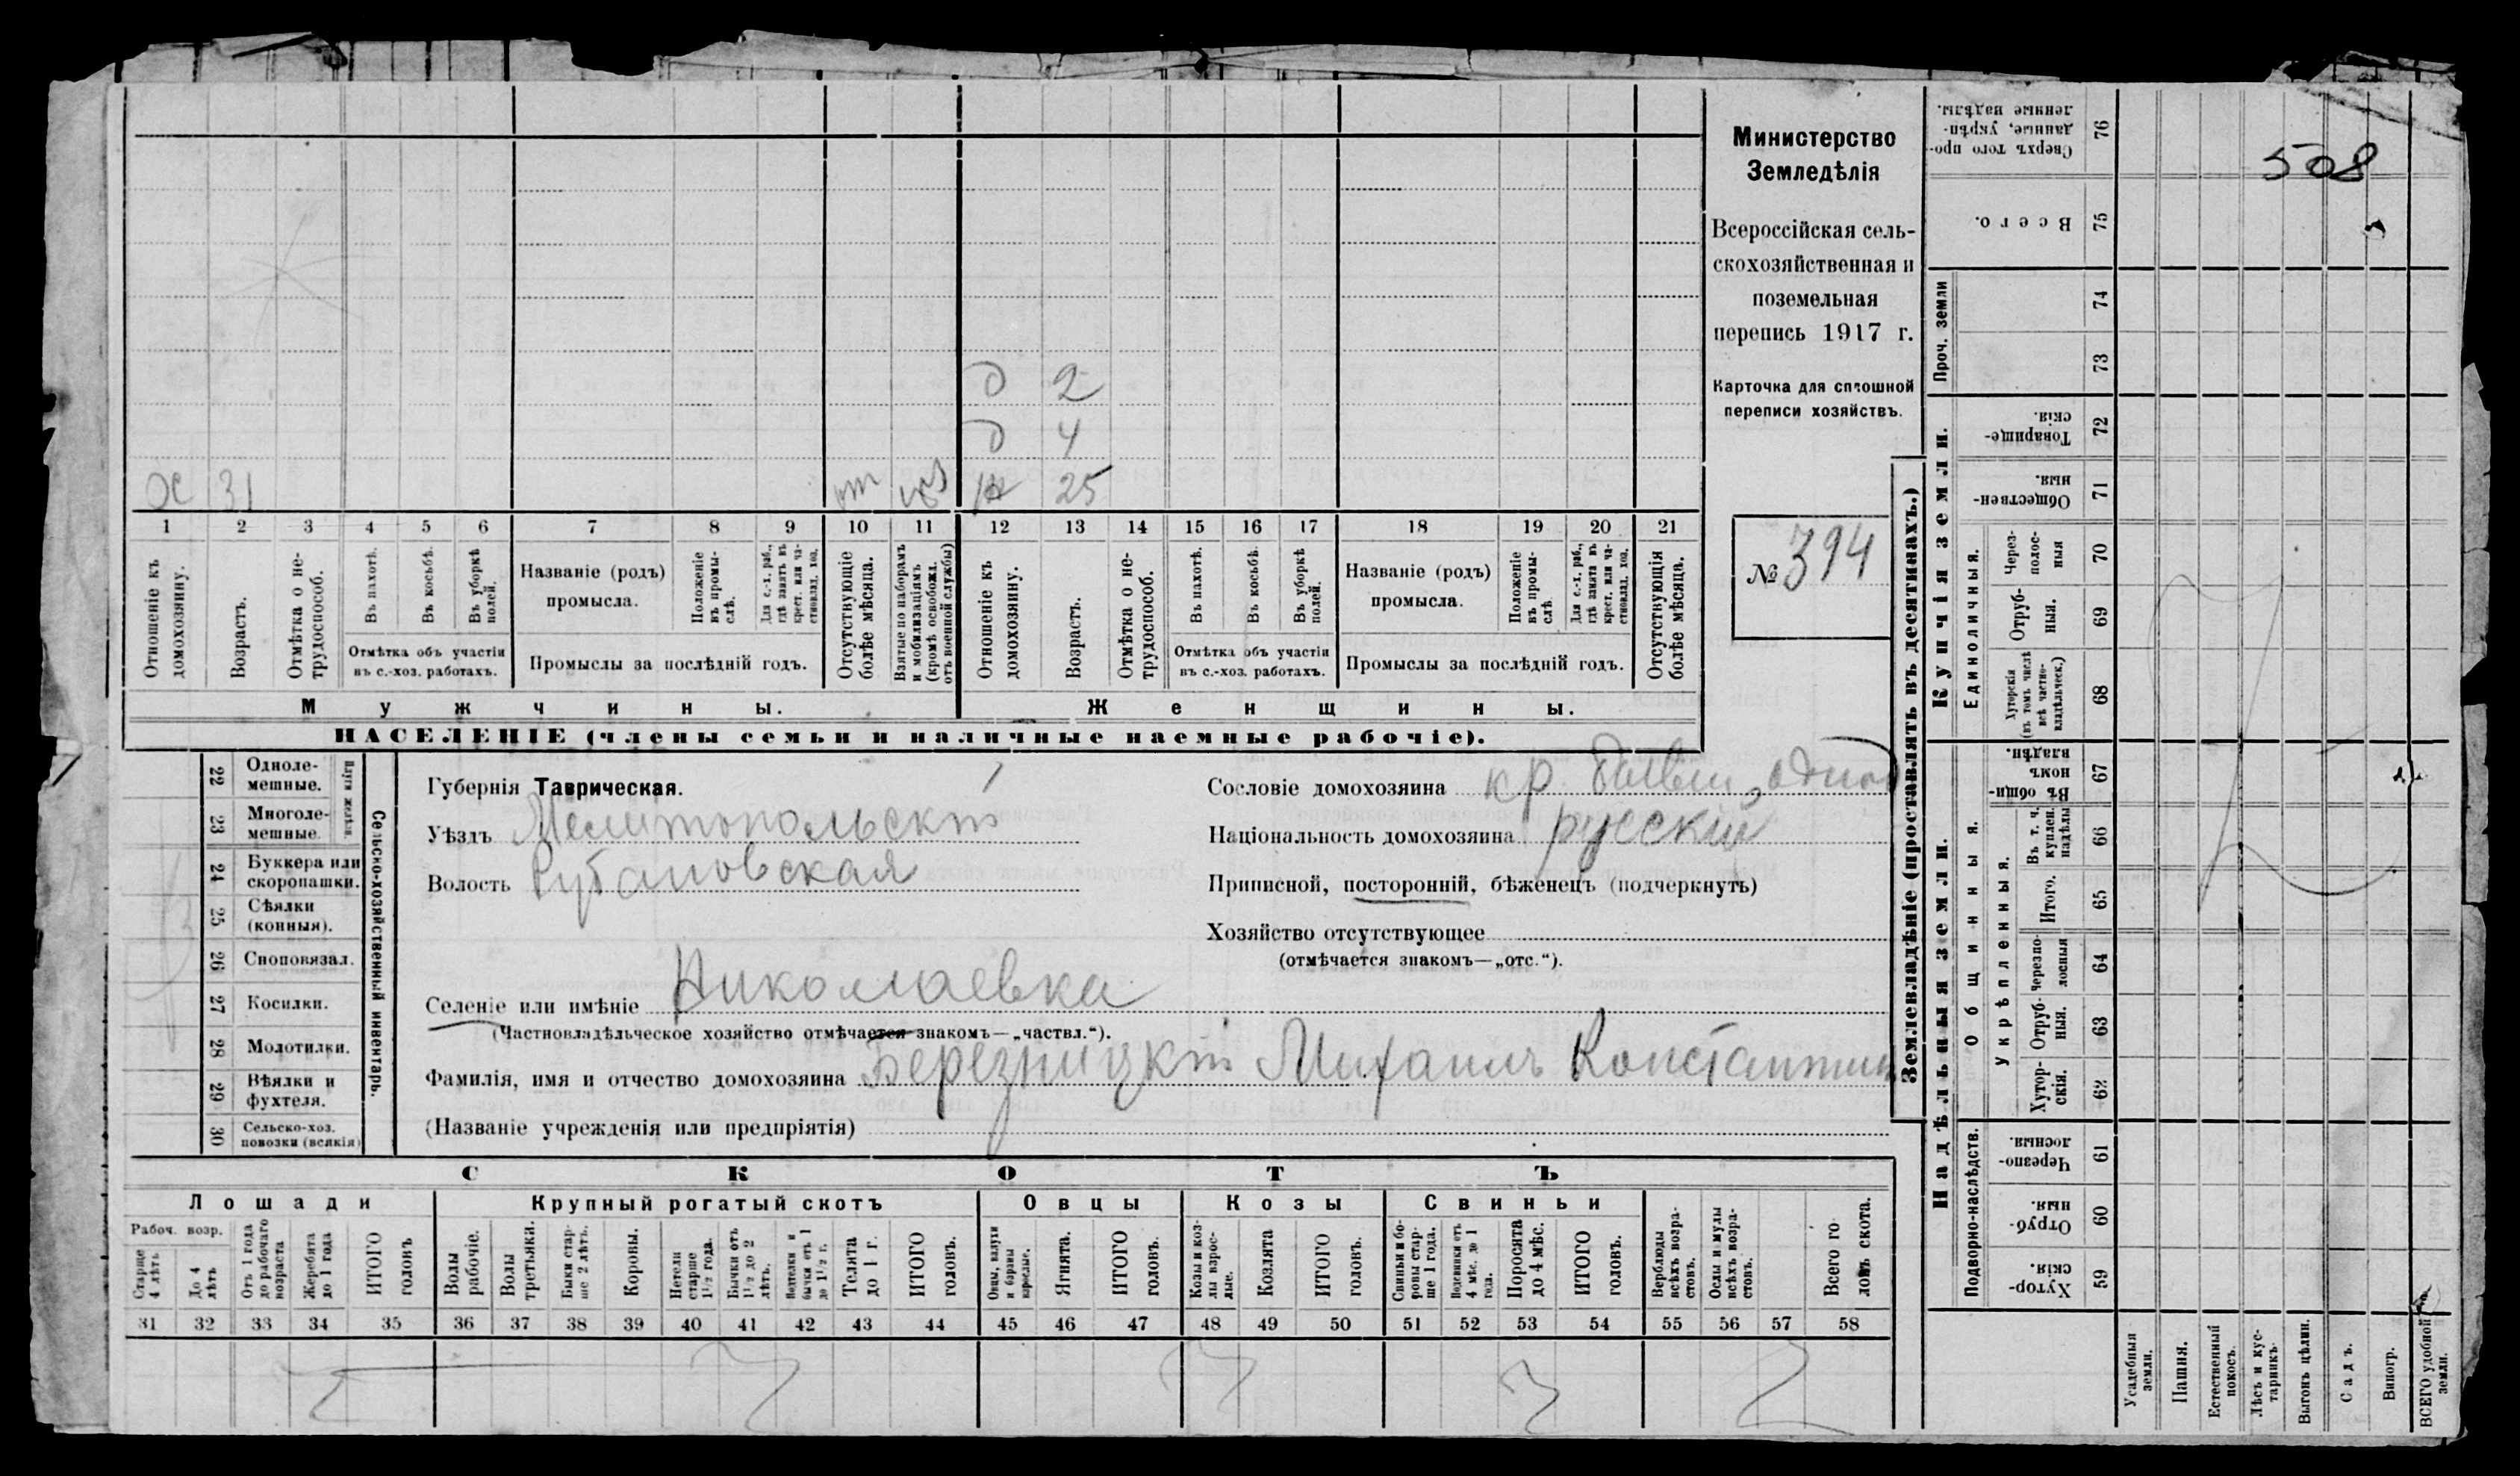 508
Министерство
Земледѣлія
Всероссійская сель-
скохозяйственная и
поземельная
перепись 1917 г.
Карточка для сплошной
переписи хозяйствъ.
№ 394
д 2
д 4
31
25
1 2 3 4 5 6 7 8 9 10 11 12 13 14 15 16 17 18 19 20 21
Отношеніе къ домохозяину.
Возрастъ.
Отмѣтка о не-трудоспособ.
Въ пахотѣ.
Въ косьбѣ.
Въ уборкѣ полей.
Отмѣтка объ участіи
въ с.-хоз. работахъ.
Названіе (родъ)
промысла.
Положеніе въ промы-слѣ.
Для с.-х. раб., гдѣ занятъ въ крест. или ча-стновлад. хоз.
Промыслы за послѣдній годъ.
Отсутствующіе болѣе мѣсяца.
Взятые по наборамъ и мобилизаціямъ (кромѣ освобожд. отъ военной службы)
Отношеніе къ домохозяину.
Возрастъ.
Отмѣтка о не-трудоспособ.
Въ пахотѣ.
Въ косьбѣ.
Въ уборкѣ полей.
Отмѣтка объ участіи
въ с.-хоз. работахъ.
Названіе (родъ)
промысла.
Положеніе въ промы-слѣ.
Для с.-х. раб., гдѣ занята въ крест. или ча-стновлад. хоз.
Промыслы за послѣдній годъ.
Отсутствующія болѣе мѣсяца.
Мужчины. Женщины.
НАСЕЛЕНІЕ (члены семьи и наличные наемные рабочіе).
Сельско-хозяйственный инвентарь.
22 Одноле-мешные.
23 Многоле-мешные.
24 Буккера или скоропашки.
25 Сѣялки (конныя).
26 Сноповязал.
27 Косилки.
28 Молотилки.
29 Вѣялки и фухтеля.
30 Сельско-хоз. повозки (всякія)
Губернія Таврическая.
Уѣздъ Мелитопольскій
Волость Рубановская
Селеніе или имѣніе Николаевка
(Частновладѣльческое хозяйство отмѣчается знакомъ—„частвл.“).
Сословіе домохозяина кр.
Національность домохозяина русскій
Приписной, посторонній, бѣженецъ (подчеркнуть)
Хозяйство отсутствующее
(отмѣчается знакомъ—„отс.“).
Фамилія, имя и отчество домохозяина Березницкій Михаилъ Константин
(Названіе учрежденія или предпріятія)
СКОТЪ
Лошади Крупный рогатый скотъ Овцы Козы Свиньи
Рабоч. возр.
Старше 4 лѣтъ
До 4 лѣтъ
Отъ 1 года до рабочаго возраста
Жеребята до 1 года
ИТОГО головъ
Волы рабочіе.
Волы третьяки.
Быки стар-ше 2 лѣтъ.
Коровы.
Нетели старше 1½ года.
Бычки отъ 1½ до 2 лѣтъ.
Нетелки и бычки отъ 1 до 1½ г.
Телята до 1 г.
ИТОГО головъ.
Овцы, валухи и бараны взрослые.
Ягнята.
ИТОГО головъ.
Козы и коз-лы взрос-лые.
Козлята
ИТОГО головъ.
Свиньи и бо-ровы стар-ше 1 года.
Подсвинки отъ 4 мѣс. до 1 года.
Поросята до 4 мѣс.
ИТОГО головъ.
Верблюды всѣхъ возра-стовъ.
Ослы и мулы всѣхъ возра-стовъ.
Всего го-ловъ скота.
31 32 33 34 35 36 37 38 39 40 41 42 43 44 45 46 47 48 49 50 51 52 53 54 55 56 57 58
Землевладѣніе (проставлять въ десятинахъ.)
Надѣльныя земли.
Купчія земли.
Проч. земли
Подворно-наслѣдств.
Общинныя.
Укрѣпленныя.
Единоличныя.
Сверхъ того про-данные, укрѣп-ленные надѣлы. 76
Всего. 75
74
73
Товарище-скія. 72
Обществен-ныя. 71
Через-полос-ныя 70
Отруб-ныя. 69
Хуторскія (въ томъ числѣ всѣ частно-владѣльческ.) 68
Въ общи-номъ владѣн. 67
Въ т. ч. куплен. надѣлы 66
Итого. 65
Черезпо-лосныя 64
Отруб-ныя. 63
Хутор-скія. 62
Черезпо-лосныя. 61
Отруб-ныя. 60
Хутор-скія. 59
Усадебныя земли.
Пашня.
Естественный покосъ.
Лѣсъ и кус-тарникъ.
Выгонъ цѣлин.
Садъ.
Виногр.
ВСЕГО удобной земли.